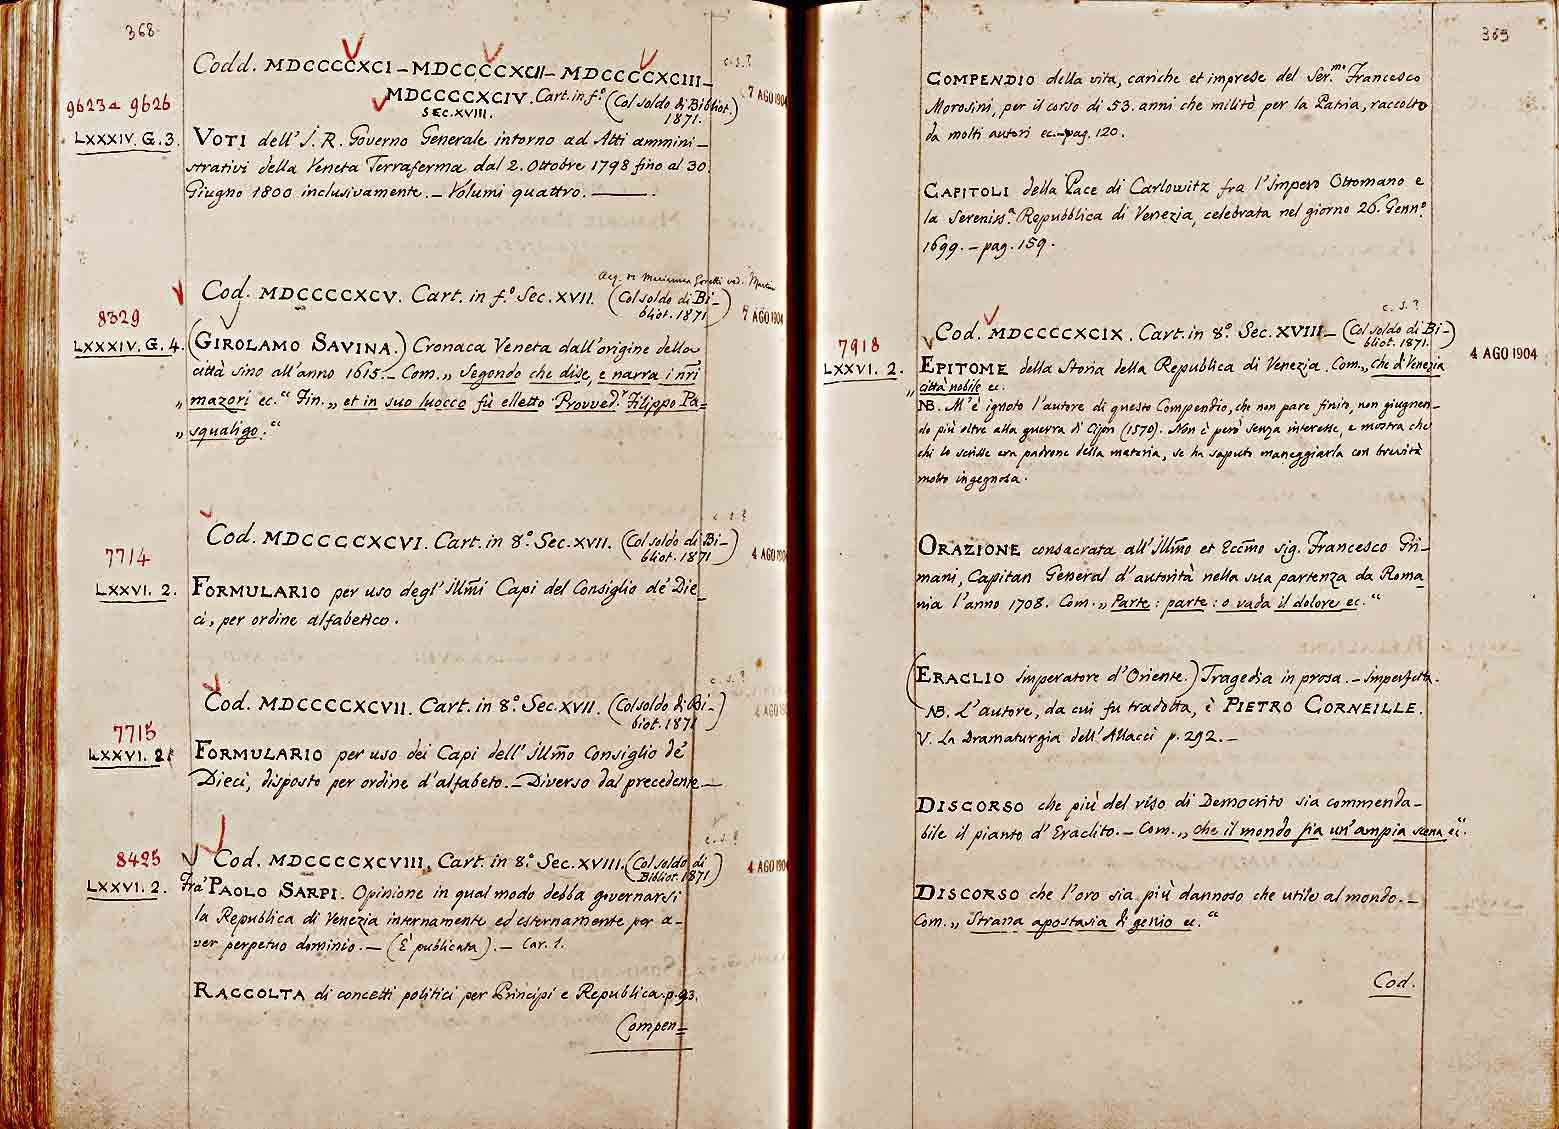 368
Codd. MDCCCCXCI – MDCCCCXCII – MDCCCCXCIII –
c. s.?
MDCCCCXCIV. Cart. in f.º (Col soldo di Bibliot. 1871.)
7 AGO 1904
SEC. XVIII.
9623 a 9626
LXXXIV. G. 3.
VOTI dell' I. R. Governo Generale intorno ad Atti ammini–
strativi della Veneta Terraferma dal 2. Ottobre 1798 fino al 30.
Giugno 1800 inclusivamente. – Volumi quattro. ——.
Acq. di Marianna Goretti ved.
Cod. MDCCCCXCV. Cart. in f.º Sec. XVII. (Col soldo di Bi–
bliot. 1871.)
7 AGO 1904
8329
LXXXIV. G. 4.
(GIROLAMO SAVINA.) Cronaca Veneta dall'origine della
città sino all'anno 1615. – Com. „ Segondo che dise, e narra i nri
„ mazori ec.“ Fin. „ et in suo luocco fù elletto Provved.r Filippo Pa=
„ squaligo.“
c. s.?
Cod. MDCCCCXCVI. Cart. in 8.º Sec. XVII. (Col soldo di Bi–
bliot. 1871)
4 AGO 1904
7714
LXXVI. 2.
FORMULARIO per uso degl' Illmi Capi del Consiglio de' Die–
ci, per ordine alfabetico.
c. s.?
Cod. MDCCCCXCVII. Cart. in 8.º Sec. XVII. (Col soldo di Bi–
bliot. 1871)
4 AGO 1904
7715
LXXVI. 2.
FORMULARIO per uso dei Capi dell' Illmo Consiglio de'
Dieci, disposto per ordine d'alfabeto. – Diverso dal precedente. —
c. s.?
8425
Cod. MDCCCCXCVIII. Cart. in 8.º Sec. XVIII. (Col soldo di
Bibliot. 1871)
4 AGO 1904
LXXVI. 2.
Fra' PAOLO SARPI. Opinione in qual modo debba governarsi
la Republica di Venezia internamente ed esternamente per a–
ver perpetuo dominio. – (È publicata). – Car. 1.
RACCOLTA di concetti politici per Principi e Republica. p. 93.
Compen=
369
COMPENDIO della vita, cariche et imprese del Ser.mo Francesco
Morosini, per il corso di 53. anni che militò per la Patria, raccolto
da molti autori ec. – pag. 120.
CAPITOLI della Pace di Carlowitz fra l'Impero Ottomano e
la Sereniss.a Republica di Venezia, celebrata nel giorno 26. Genn.º
1699. – pag. 159.
c. s.?
Cod. MDCCCCXCIX. Cart. in 8.º Sec. XVIII – (Col soldo di Bi–
bliot. 1871.)
4 AGO 1904
7918
LXXVI. 2.
EPITOME della Storia della Republica di Venezia. Com. „ che di Venezia
„ città nobile ec.
NB. M'è ignoto l'autore di questo Compendio, che non pare finito, non giugnen–
do più oltre alla guerra di Cipri (1570). Non è però senza interesse, e mostra che
chi lo scrisse era padrone della materia, se ha saputo maneggiarla con brevità
molto ingegnosa.
ORAZIONE consacrata all' Illmo et Eccmo sig. Francesco Gri–
mani, Capitan General d'autorità nella sua partenza da Roma–
nia l'anno 1708. Com. „ Parte: parte: o vada il dolore ec.“
(ERACLIO Imperatore d'Oriente.) Tragedia in prosa. – Imperfetta.
NB. L'autore, da cui fu tradotta, è PIETRO CORNEILLE.
V. La Dramaturgia dell'Allacci p. 292. –
DISCORSO che più del riso di Democrito sia commenda–
bile il pianto d'Eraclito. – Com. „ che il mondo sia un'ampia scena ec“.
DISCORSO che l'oro sia più dannoso che utile al mondo. –
Com. „ Strana apostasia di genio ec.“
Cod.